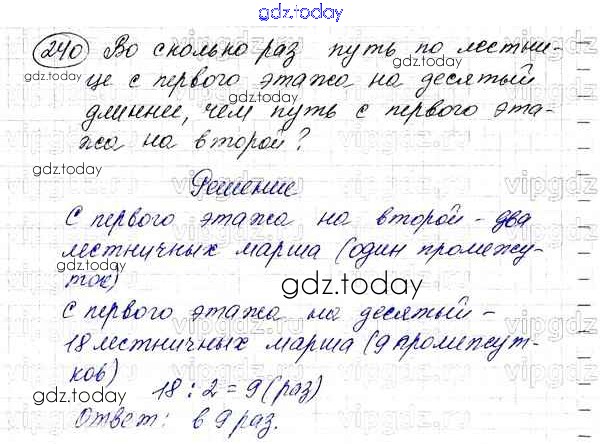 gdz.today
240 Во сколько раз путь по лестни-
це с первого этажа на десятый
длиннее, чем путь с первого эта-
жа на второй?
Решение
С первого этажа на второй - два
лестничных марша (один промежу-
ток)
С первого этажа на десятый -
18 лестничных марша (9 промежут-
ков)
18 : 2 = 9 (раз)
Ответ: в 9 раз.
gdz.today
gdz.today
gdz.today
gdz.today
gdz.today
gdz.today
gdz.today
vipgdz
vipgdz
vipgdz
vipgdz